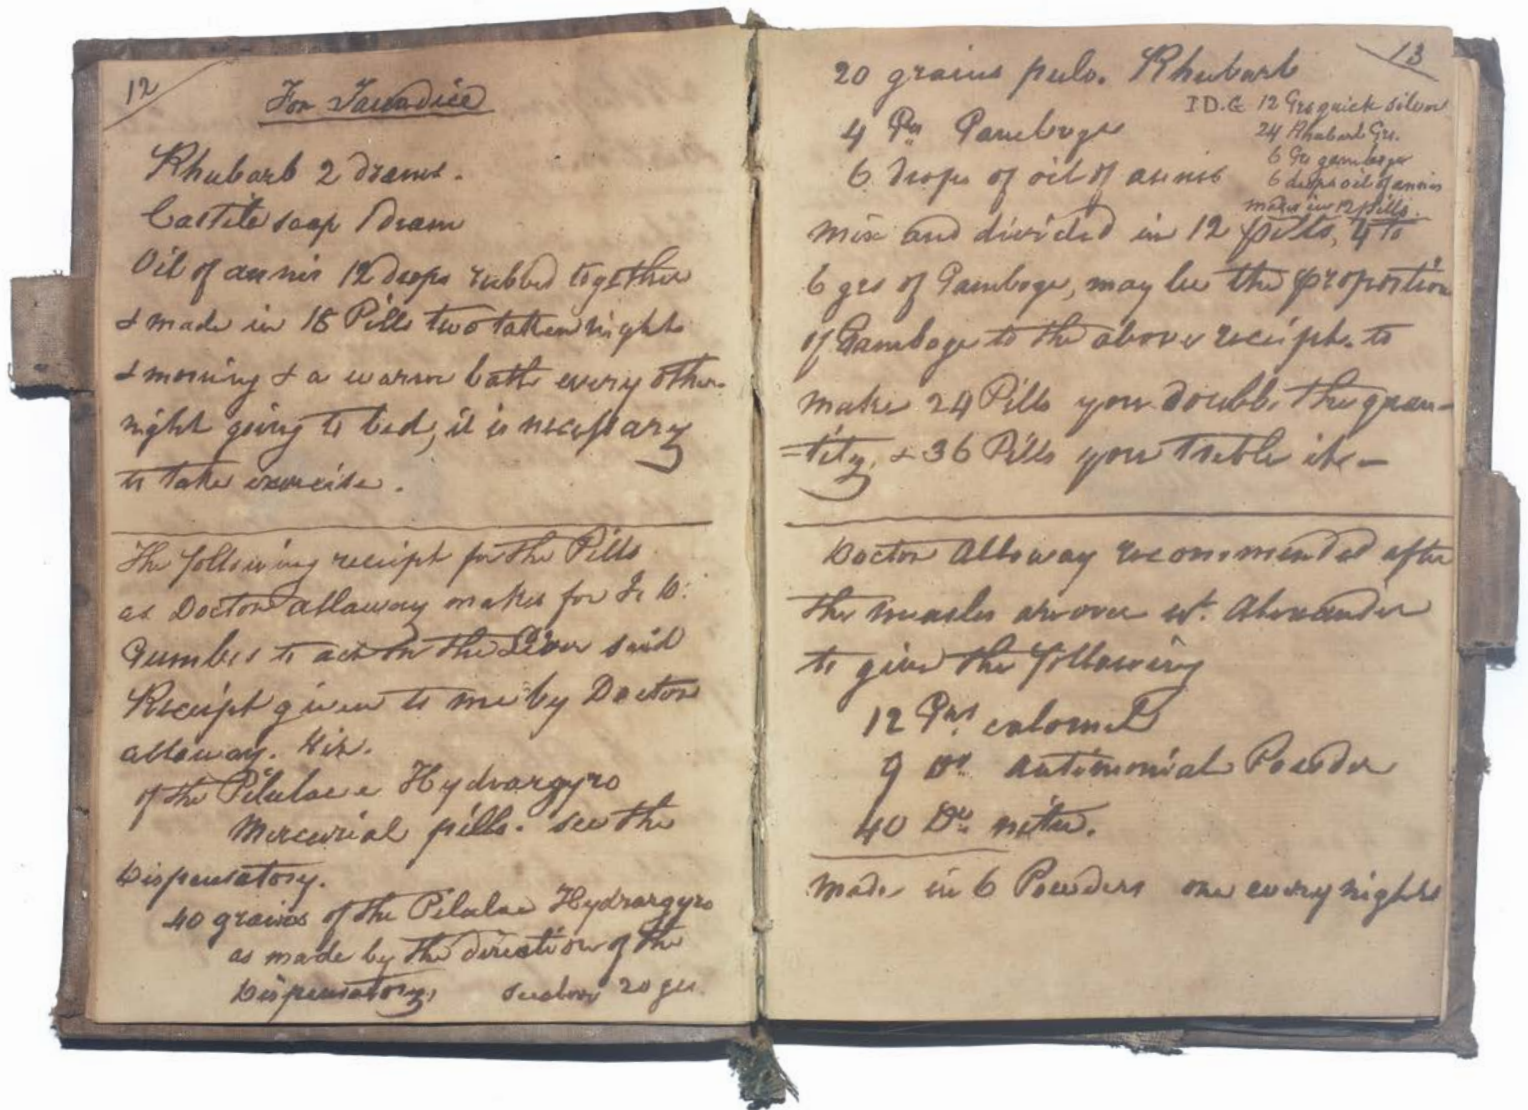 12
For Jaundice
Rhubarb 2 drams.
Castile soap 1 dram
Oil of annis 12 drops rubbed together
& made in 18 Pills two taken night
& morning & a warm bath every other
night going to bed, it is necessary
to take exercise.
The following receipt for the Pills
as Doctor Alloway makes for
to act on the Liver said
Receipt given to me by Doctor
Alloway. Viz.
of the Pilulae e Hydrargyro
Mercurial pills. see the
Dispensatory.
40 grains of the Pilulae Hydrargyro
as made by the direction of the
Dispensatory, see above 20 grs
13
20 grains pulv. Rhubarb
4 Grs Gamboge
6 drops of oil of annis
I.D.G 12 Grs quick silver
24 Rhubarb Grs.
6 Grs gamboge
6 drops oil of annis
make in 12 pills.
mix and divided in 12 pills, 4 to
6 grs of Gamboge, may be the proportion
of Gamboge to the above receipt. to
make 24 Pills you double the quan-
=tity, & 36 Pills you treble it -
Doctor Alloway recommended after
the measles are over Wt. Alexander
to give the following
12 Grs. calomel
9 Do. antimonial Powder
40 Do. nitre.
made in 6 Powders one every night